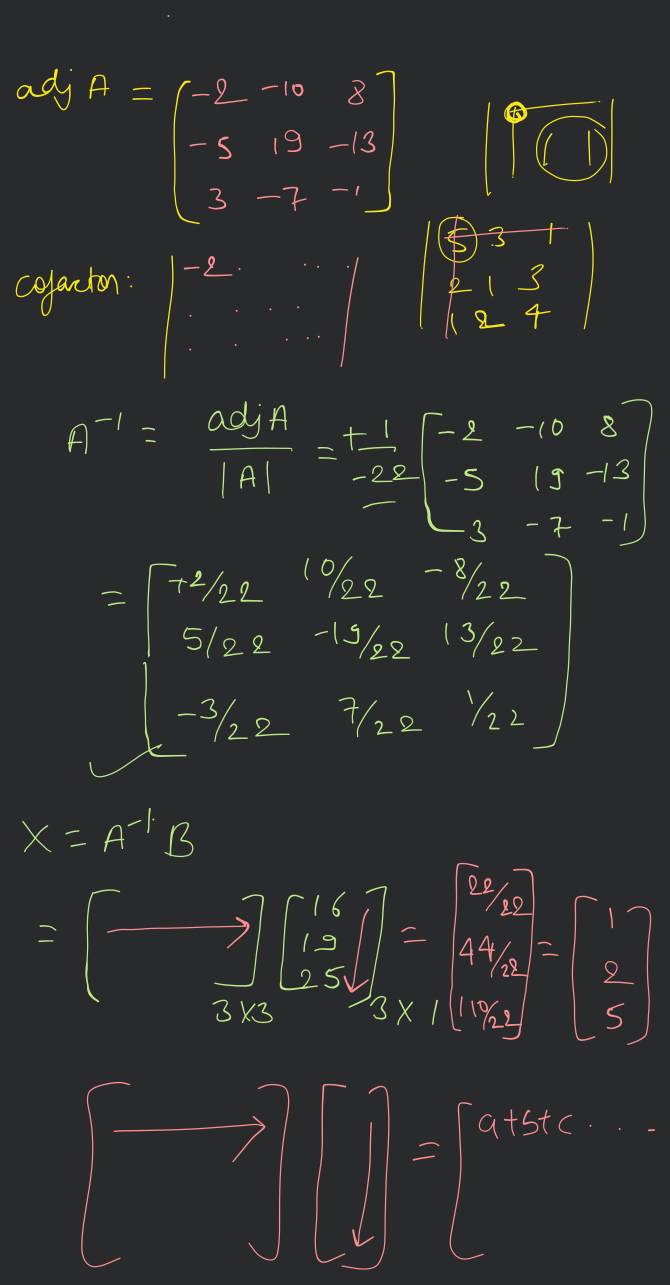 adj A = [-2 -10 8
-5 19 -13
3 -7 -1]
cofactor: |-2 . . . .|
|5 3 1
2 1 3
1 2 4|
A⁻¹ = adj A / |A| = + 1/-22 [-2 -10 8
-5 19 -13
3 -7 -1]
= [+2/22 10/22 -8/22
5/22 -19/22 13/22
-3/22 7/22 1/22]
X = A⁻¹ B
= [ → ] 3×3 [16
19
25] 3×1 = [22/22
44/22
110/22] = [1
2
5]
[ → ] [ ↓ ] = [a+b+c . . .